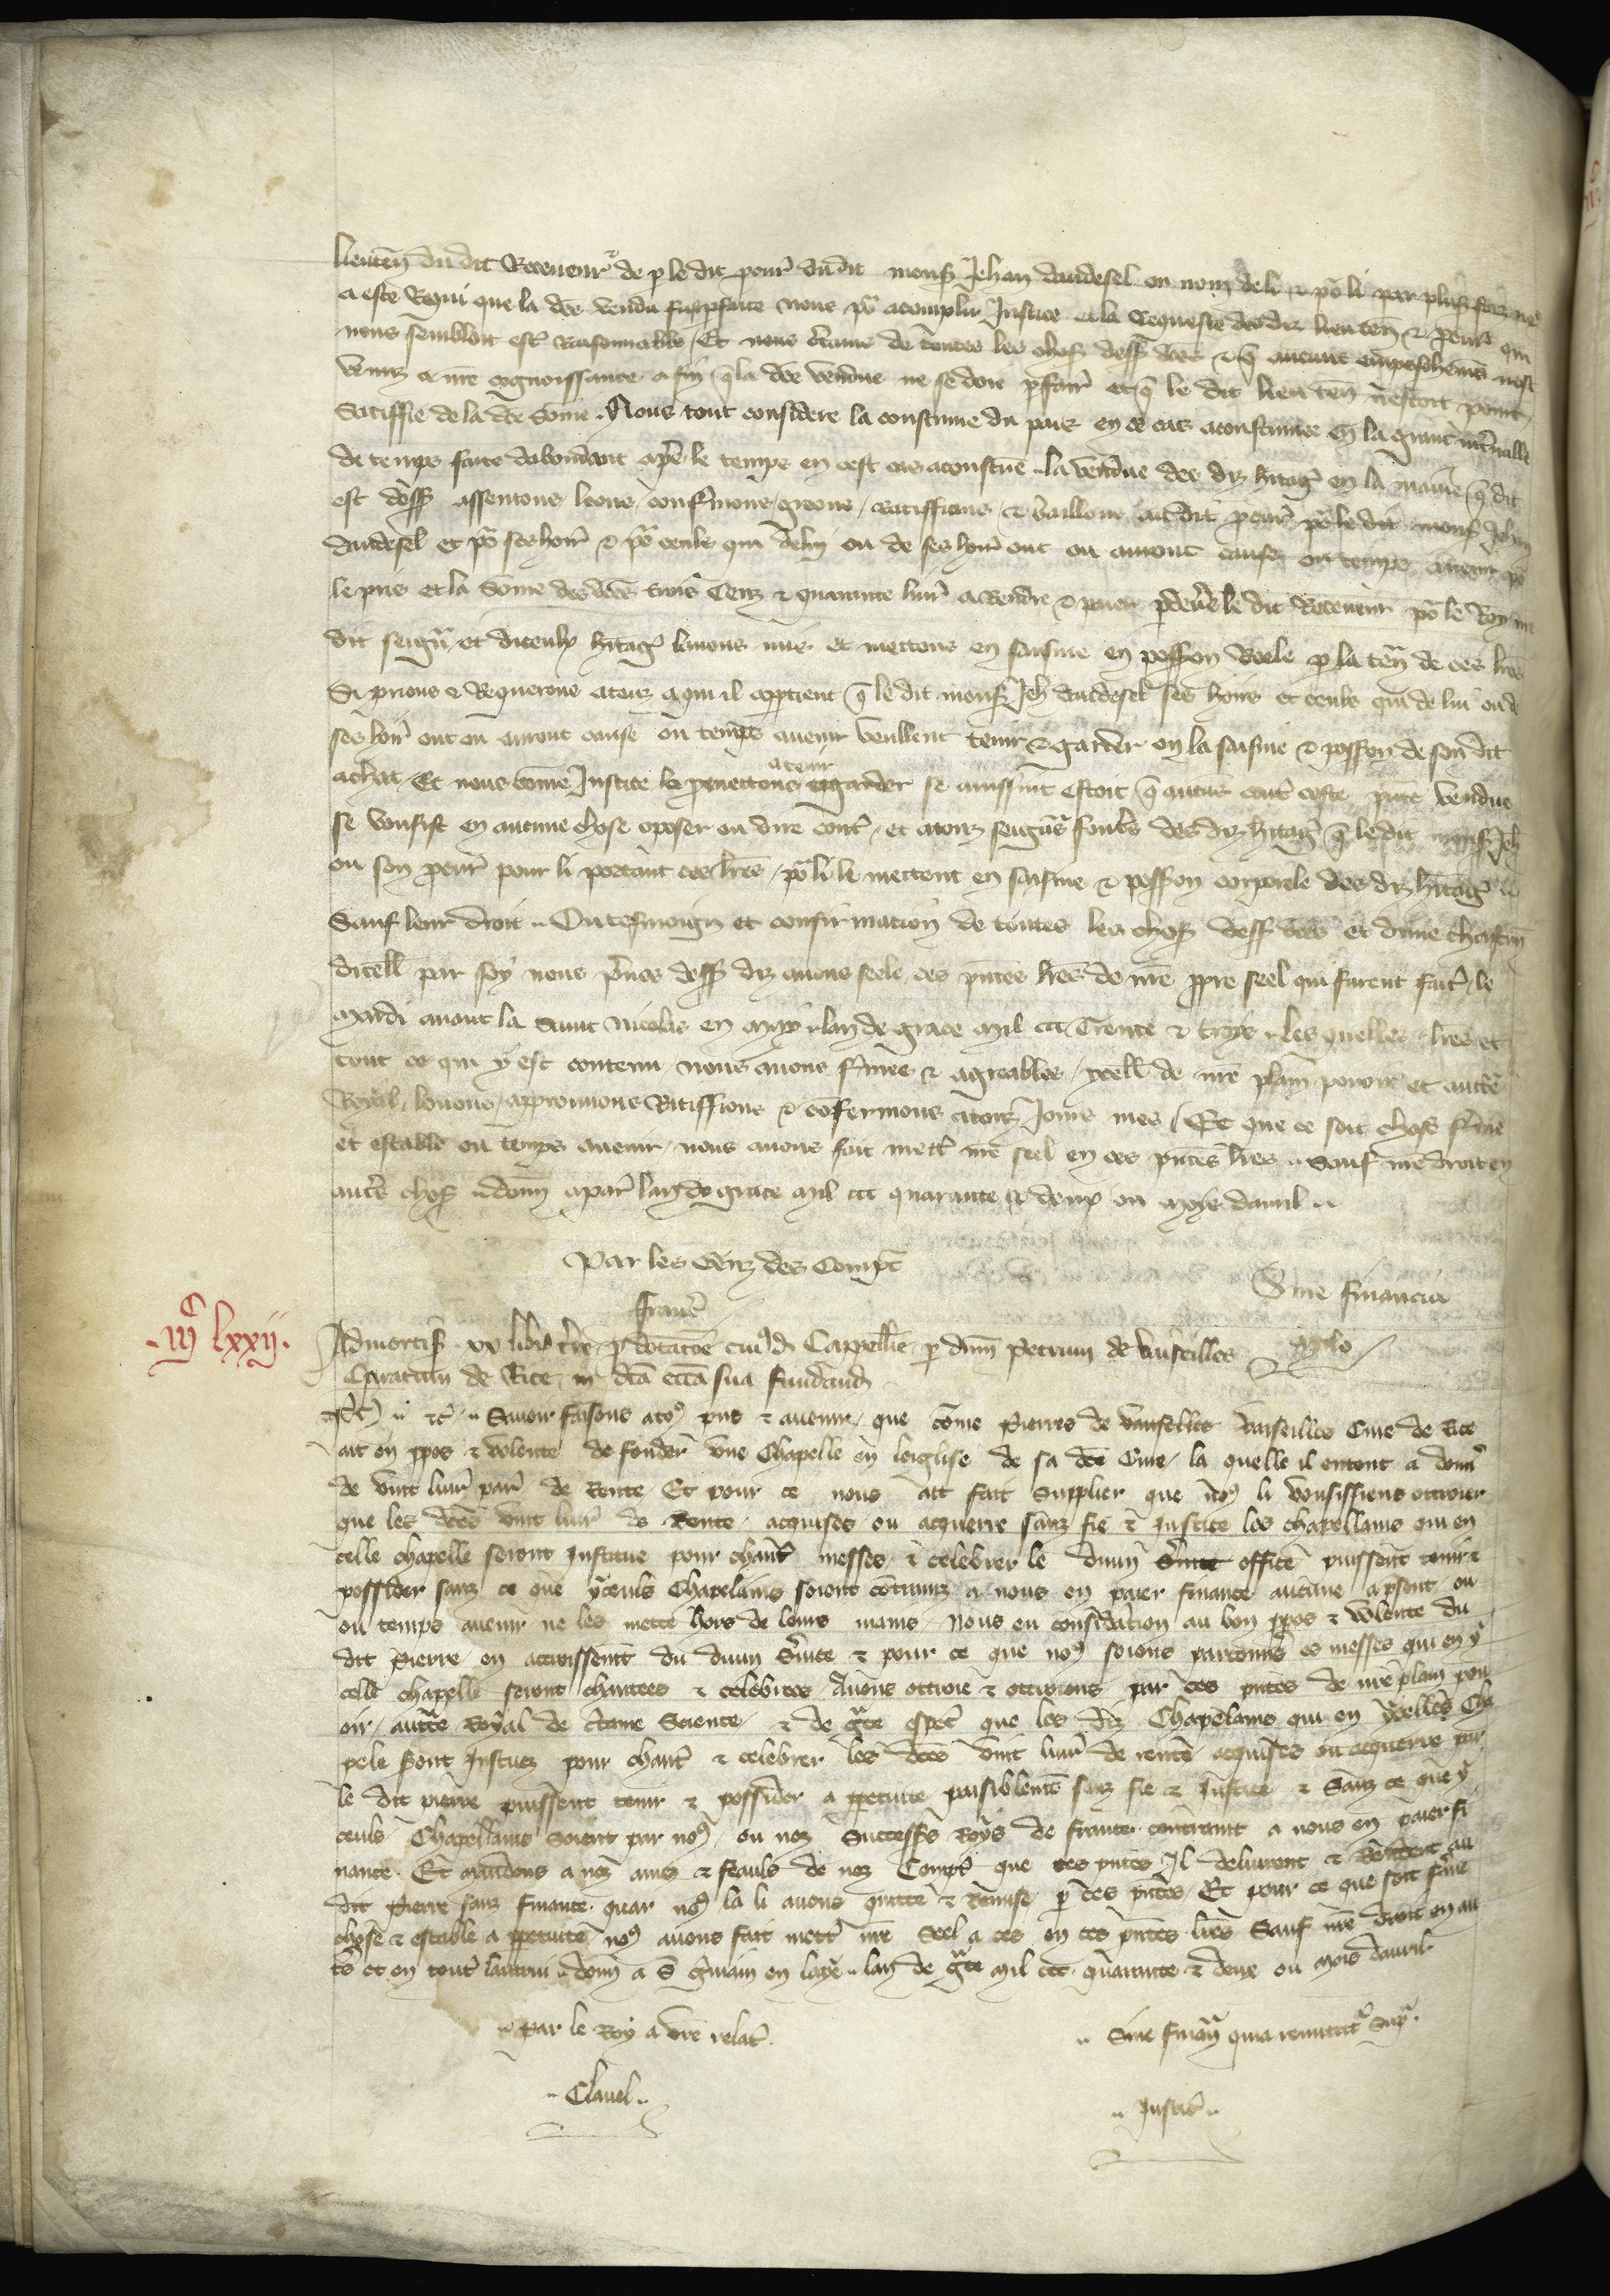 lieuten du dit Receveur de p le dit pour dudit mons Jehan dandesel ou nom de li et po li par plus foiz
a este Requi que la dce vendu fu pfaite nous po acomplir Justice et la Requeste des diz lieuten et pcur qui
nous sembloit est Raisonnable Et nous ctains de toutes les choses dess dces et q aucuns empeschems nest
venuz a nre cognoissance a fin q la dce vendue ne se doie pfair et q le dit lieu ten nestoit point
Satiffie de la dce some. Nous tout considere la coustume du pais en ce cas acoustumee et la grant intvalle
de temps faite dabondant apres le temps en cest cas acoustume la vendue des diz hitag en la manie q dit
est dess assentons loons confermons greons ratiffions et baillons au dit pcur po le dit mons Jehan
dandesel et po ses hoirs et po ceulx qui de luy ou de ses hoirs ont ou auront cause ou temps avenir po
le pris et la some des dces trois Cenz et quarante livr a Rendre et paier p devers le dit Receveur po le Roy nre
dit seign et diceulx hitag lavons mis et mettons en saisine en possession Reele p la ten de ces lres
Si prions et Requerons a touz a qui il apptient q le dit mons Jeh dandesel ses hoirs et ceuls qui de lui ou de
ses hoirs ont ou auront cause ou temps avenir veullent tenir et garder en la saisine et possession de son dit
achat Et nous come Justice le pmettons a tenir garder se ainssint estoit q aucuns cont ceste pnte vendue
se vousist en aucune chose oposer ou dire cont et a touz seigns fonts des diz hitag q le dit mons Jeh
ou son pcur pour li portant ces lres po li le mettent en saisine et possession corporele des diz hitag
Sauf leur droit En tesmoign et confirmation de toutes les choses dess dces et dune chascun
dicell par soy nous pvos dess diz avons seele ces pntes lres de nre ppre seel qui furent fait le
Mardi avant la Saint Nicolas en May lan de grace Mil ccc Trente et troys Les quelles lres et
tout ce qui y est contenu nous avons fmes et agreables ycell de nre plain povoir et aucte
Royal louons approuvons Ratiffions et confermons a touz Jours mes Et que ce soit chose ferme
et estable ou temps avenir nous avons fait mett nre seel en ces pntes lres Sauf nre droit en
autres choses donn a par lan de grace Mil ccc quarante et deux ou moys davril
Par les Genz des Compt
Sine financia
Frauc
mc lxxij.
Admortis xx libr tre p dotatoe cuid Cappellie p dnm Petrum de Vauseilles
Curatum de Rite in dca ecca sua fundand
Ph etc Savoir faisons a toz pns et avenir que come Pierres de Vauselles Vauseilles Cure de Rite
ait en ppos et volente de fonder une Chapelle en leiglise de sa dce Cure la quelle il entent a donner
de vint livr par de Rente Et pour ce nous ait fait supplier que no li vousissiens ottroier
que les dces vint livr de Rente acquises ou acquerre sanz fie et Justice les chapellains qui en
celle chapelle seront Institue pour chant messes et celebrer le divin Svice office puissent tenir et
possider sanz ce que yceuls Chapelains soient contrainz a nous en paier finance aucune a psent ou
ou temps avenir ne les mettre hors de leurs mains Nous en considation au bon ppos et volente du
dit Pierre en accroissent du divin Svice et pour ce que no soions parconns es messes qui en y
celle chapelle seront chantees et celebrees Avons ottroie et ottroions par ces pntes de nre plain pou
oir auctte Royal de ctaine Science et de gce espec que les diz Chapelains qui en ycelles Cha
pele sont Instuez pour chant et celebrer les dces vint livr de rente acquises ou acquerre par
le dit pierre puissent tenir et possider a ppetuite paisiblement sanz fie et Justice et Sanz ce que y
ceuls Chapellains soient par no ou noz Successrs Roys de France contraint a nous en paier fi
nance Et mandons a noz ames et feauls de noz Compt que ces pntes Il delivrent et Rendent au
dit Pierre sanz finance quar no la li avons quitte et remise p ces pntes Et pour ce que soit fme
chose et estable a ppetuite no avons fait mett nre Seel a ces en ces pntes lres Sauf nre droit en au
ts et en tout lautrui donn a S Gmain en laye lan de gce Mil ccc quarante et deux ou mois davril
Par le Roy a vre relat
Sine finan quia remittit sup
Clavel
Justic